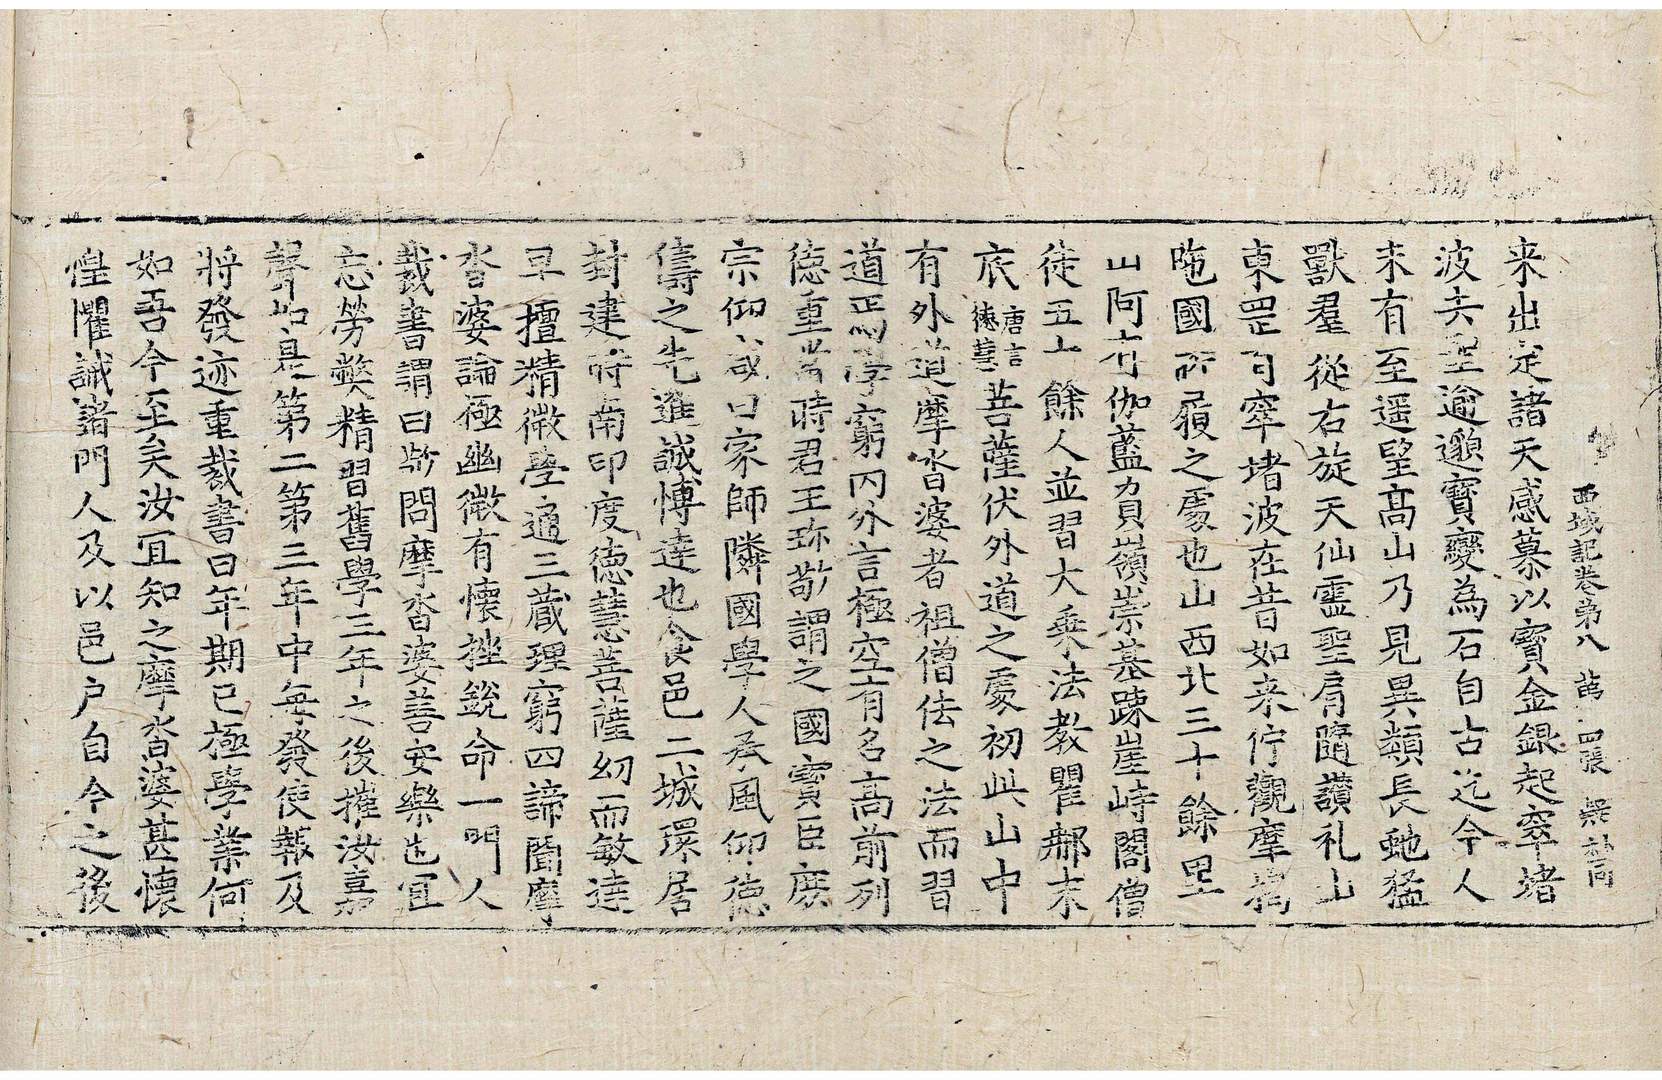 西域記卷第八 萬 四張
来出定諸天感慕以寳金銀起窣堵
波去聖逾邈寳變為石自古迄今人
未有至遥望髙山乃見異類長虵猛
獸羣從右旋天仙靈聖肩隨讃礼山
東罡有窣堵波在昔如来佇觀摩揭
陁國所履之處也山西北三十餘里
山阿有伽藍負嶺崇基踈崖峙閣僧
徒五十餘人並習大乗法教瞿郍末
底唐言德慧菩薩伏外道之處初此山中
有外道摩沓婆者祖僧佉之法而習
道焉學窮内外言極空有名髙前列
德重當時君王珎敬謂之國寳臣庶
宗仰咸曰家師隣國學人承風仰德
儔之先進誠博達也食邑二城環居
封建時南印度德慧菩薩幼而敏達
早擅精微學通三藏理窮四諦聞摩
沓婆論極幽微有懷挫銳命一門人
裁書謂曰敬問摩沓婆善安樂也宜
忘勞弊精習舊學三年之後摧汝嘉
聲如是第二第三年中每發使報及
將發迹重裁書曰年期已極學業何
如吾今至矣汝宜知之摩沓婆甚懷
惶懼誡諸門人及以邑户自今之後